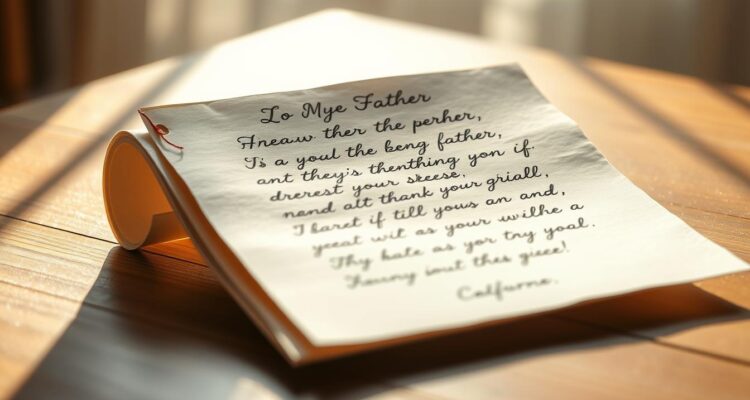 To Mye Father
Aneaw ther the perher,
Is a youl the beng father,
ant they's thentthing yon if.
drerest your skeese,
nand alt thank your griall,
I baret if till yous an and,
yeeat wit as your wuilhe a
Thy bale as yor tny yoal.
iout thes giece!